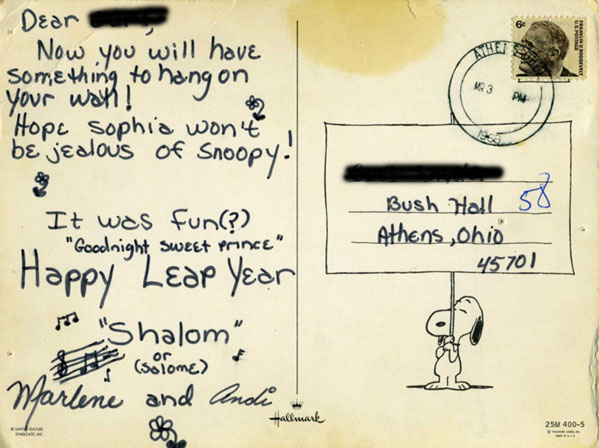 Dear
Now you will have
something to hang on
your wall!
Hope Sophia won't
be jealous of Snoopy!
It was fun(?)
"Goodnight sweet prince"
Happy Leap Year
"Shalom"
or
(Salome)
Marlene and Andi
© UNITED FEATURE
SYNDICATE, INC.
Hallmark
6¢
FRANKLIN D. ROOSEVELT
U.S. POSTAGE
ATHENS
MR 3
PM
1968
Bush Hall 58
Athens, Ohio
45701
25M 400-5
© HALLMARK CARDS, INC.
MADE IN U.S.A.